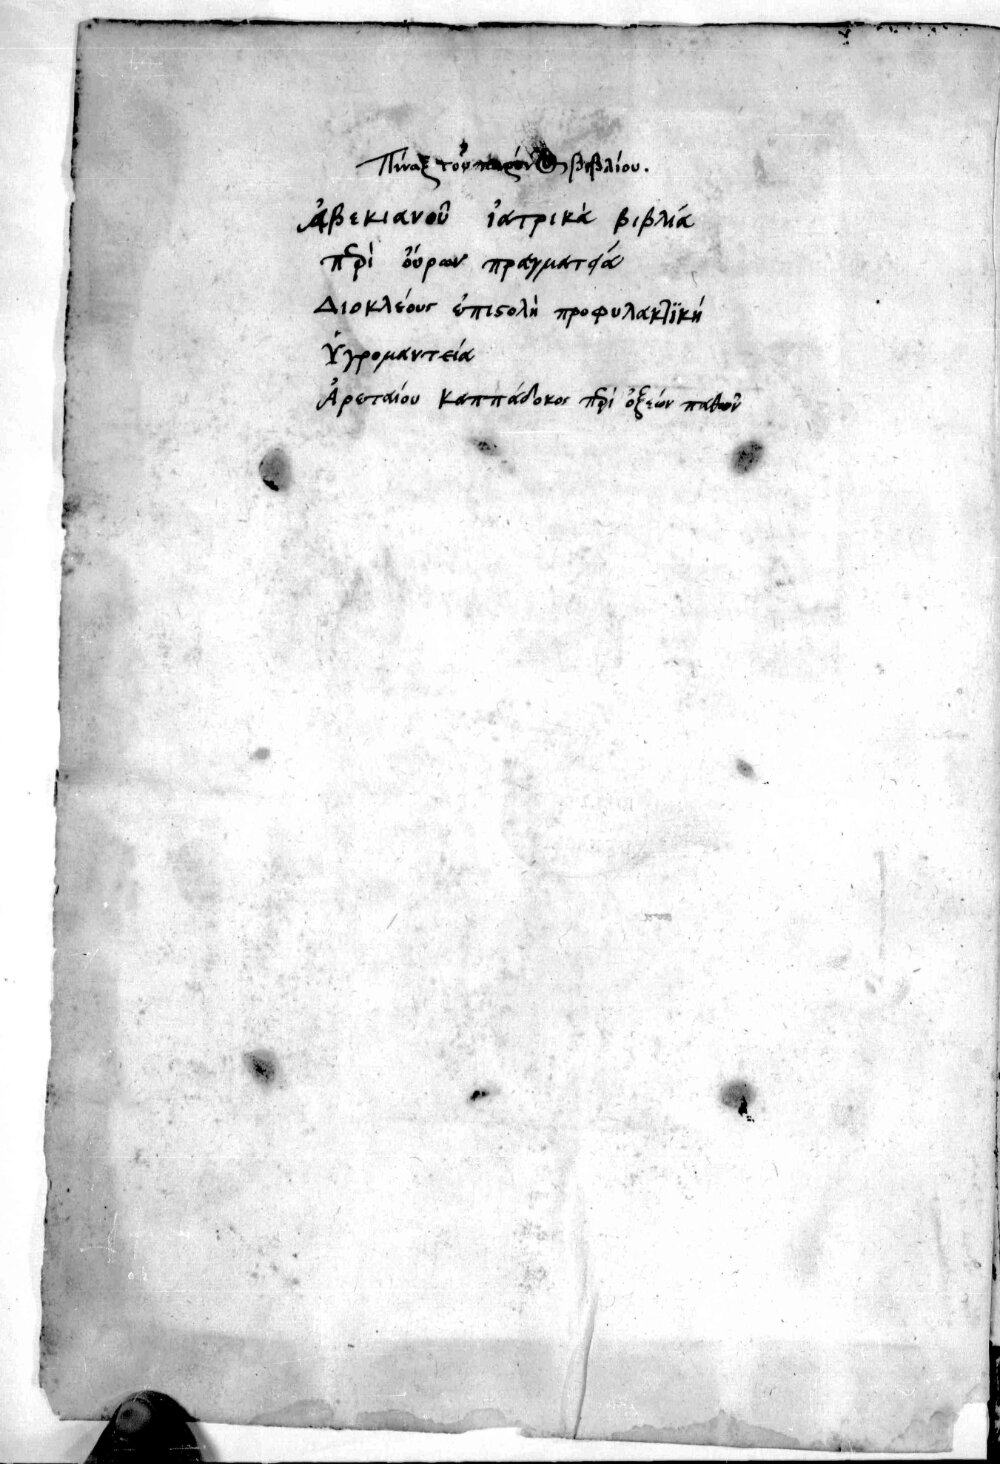 Πίναξ τοῦ παρόντος βιβλίου.
Ἀβεκιανοῦ ἰατρικὰ βιβλία
περὶ οὔρων πραγματεία
Διοκλέους ἐπιστολὴ προφυλακτϊκή
Ὑγρομαντεία
Ἀρεταίου Καππάδοκος περὶ ὀξεών παθῶν